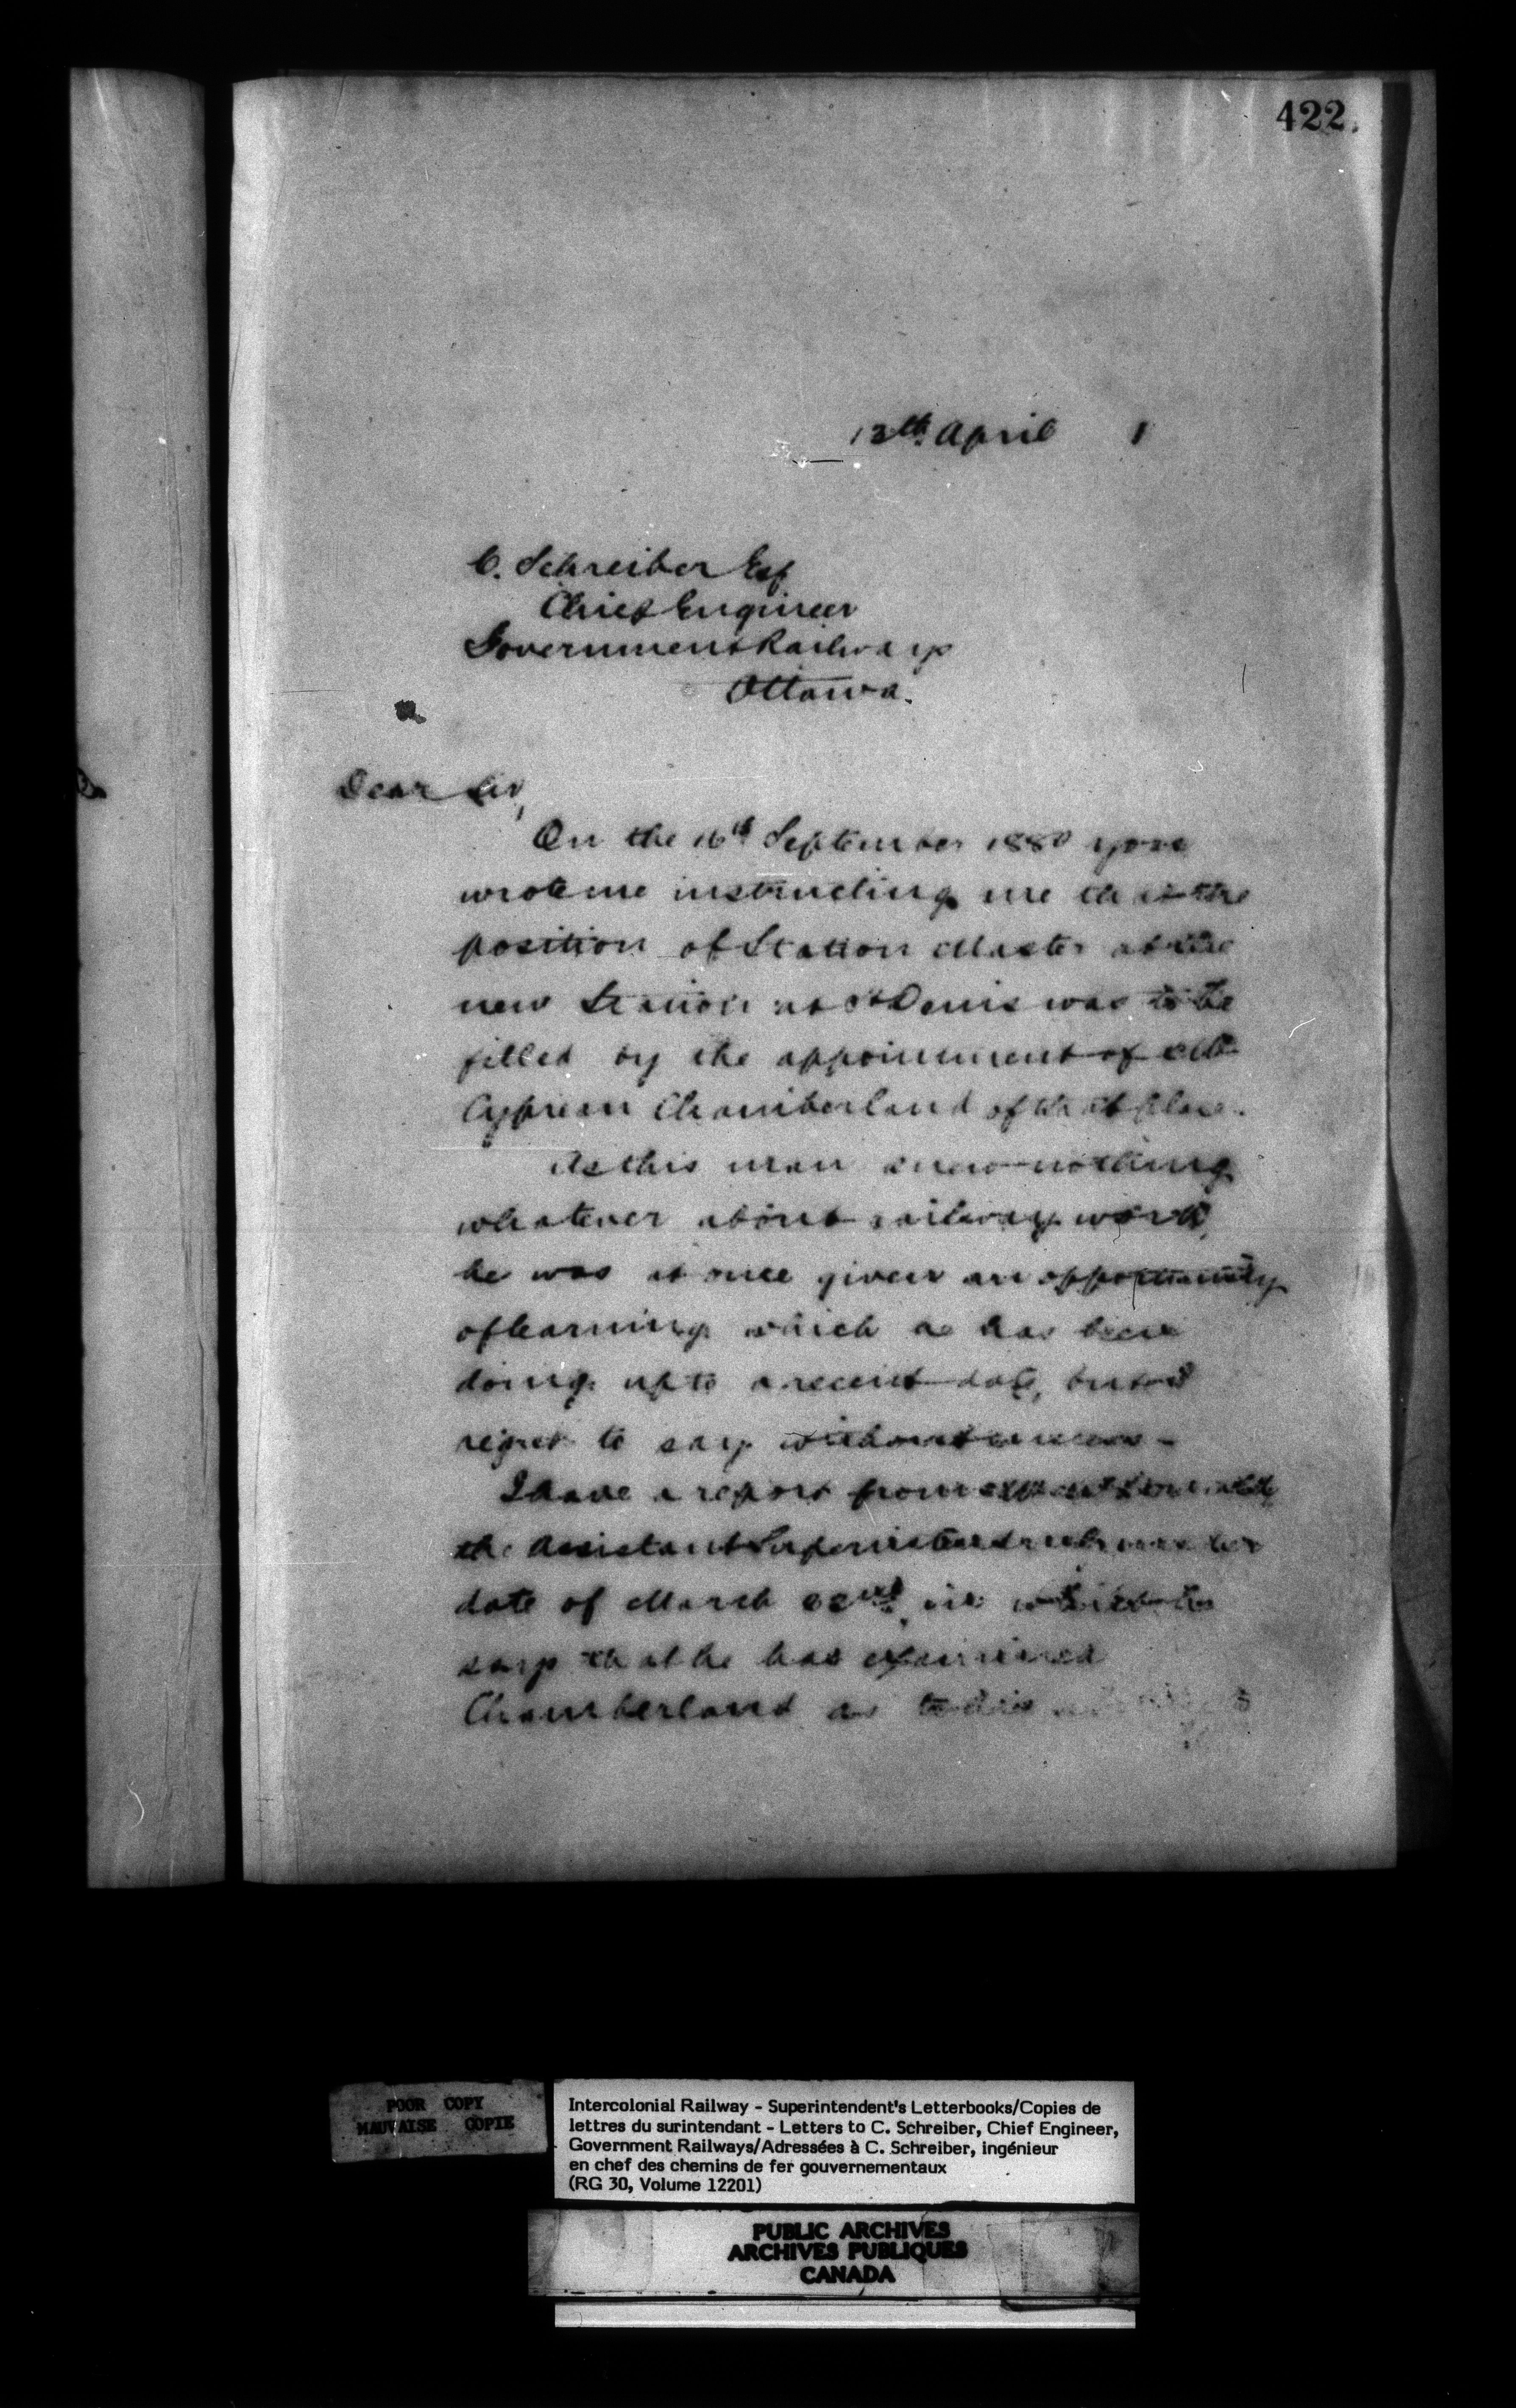 422.
13th April 1
C. Schreiber Esq
Chief Engineer
Government Railways
Ottawa.
Dear Sir,
On the 16th September 1880 you
wrote me instructing me that the
position of Station Master at the
new Station at St Denis was to be
filled by the appointment of Mr
Cyprean Chamberland of that place.
As this man knew nothing
whatever about railway work,
he was at once given an opportunity
of learning which he has been
doing up to a recent date, but I
regret to say without success -
I have a report from
the Assistant Superintendent under
date of March 22nd, in which he
says that he has examined
Chamberland as to his
POOR COPY
MAUVAISE COPIE
Intercolonial Railway - Superintendent's Letterbooks/Copies de
lettres du surintendant - Letters to C. Schreiber, Chief Engineer,
Government Railways/Adressées à C. Schreiber, ingénieur
en chef des chemins de fer gouvernementaux
(RG 30, Volume 12201)
PUBLIC ARCHIVES
ARCHIVES PUBLIQUES
CANADA